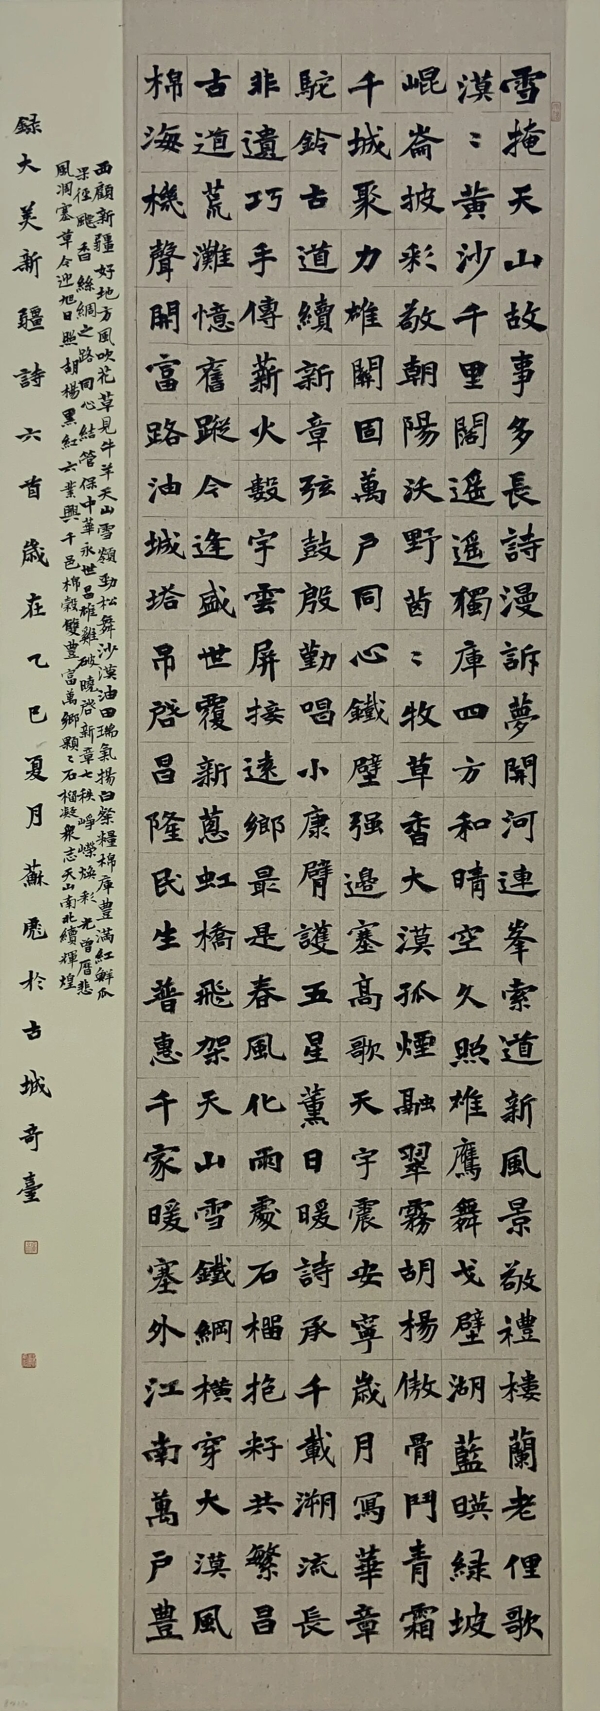 雪掩天山故事多長詩漫訴夢開河連峯索道新風景敬禮樓蘭老俚歌
漠〻黃沙千里闊遥遥獨庫四方和晴空久照雄鷹舞戈壁湖藍暎緑坡
崐崙披彩敬朝陽沃野茵〻牧草香大漠孤煙融翠霧胡楊傲骨鬥青霜
千城聚力雄關固萬戶同心鐵壁强邊塞高歌天宇震安寧歲月寫華章
駝鈴古道續新章弦鼓殷勤唱小康臂護五星薰日暖詩承千載溯流長
非遺巧手傳薪火數宇雲屏接遠鄉最是春風化雨處石榴抱籽共繁昌
古道荒灘憶舊蹤今逢盛世覆新蔥虹橋飛架天山雪鐵網横穿大漠風
棉海機聲開富路油城塔吊啓昌隆民生普惠千家暖塞外江南萬戶豐
西顧新疆好地方風吹花草見牛羊天山雪嶺勁松舞沙漠油田瑞氣揚白粲糧棉庫豐滿紅鮮瓜
果徑飃香絲綢之路同心結管保中華永世昌雄雞破曉啓新章七秩崢嶸焕彩光曾曆悲
風凋塞草今迎旭日照胡楊黑紅六業興千邑棉穀雙豐富萬鄉顆〻石榴凝衆志天山南北續輝煌
録大美新疆詩六首歲在乙巳夏月蘇彪於古城奇臺